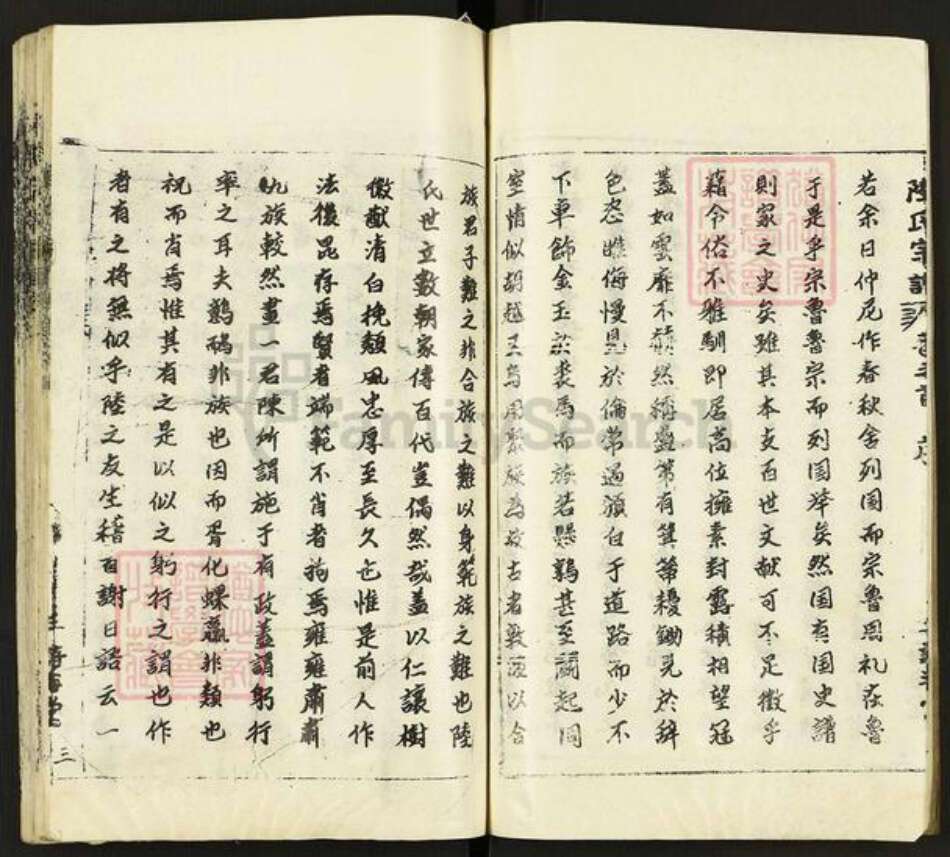 陸氏宗譜 卷之首 序
若余曰仲尼作春秋舍列國而宗魯周礼在魯
于是乎宗魯魯宗而列國萃矣然国有国史譜
則家之史矣雖其本支百世文献可不足徵乎
藉令俗不雅馴即居高位擁素封露積相望冠
蓋如雲靡不然稱盛第有箕箒耰鋤見於辭
色恣睢侮慢見於倫常過須白于道路而少不
下車飾金玉於裘馬而族若懸鶉甚至鬩起同
室情似胡越又烏用聚族為故古者敦族以合
族君子難之非合族之難以身範族之難也陸
氏世立數朝家傳百代豈偶然哉蓋以仁讓樹
徽猷清白挽頹風忠厚至長久也惟是前人作
法後昆存焉賢者端範不肖者拘焉雍雍肅肅
九族較然畫一君陳所謂施于有政蓋謂躬行
率之耳夫鶉鴿非族也因而胥化蜾蠃非類也
祝而肖焉惟其有之是以似之躬行之謂也作
者有之將無似乎陸之友生稽首謝曰語云一
三
FamilySearch